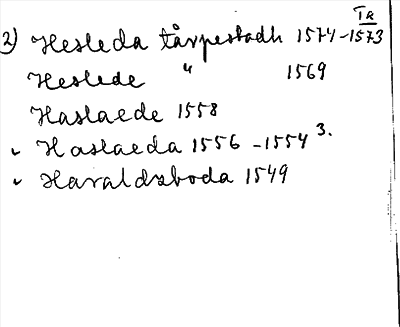 Ta
2) Hesleda tårpestadh 1574-1573
Heslede " 1569
Haslaede 1558
Haslaeda 1556-1554 3.
Haraldzboda 1549